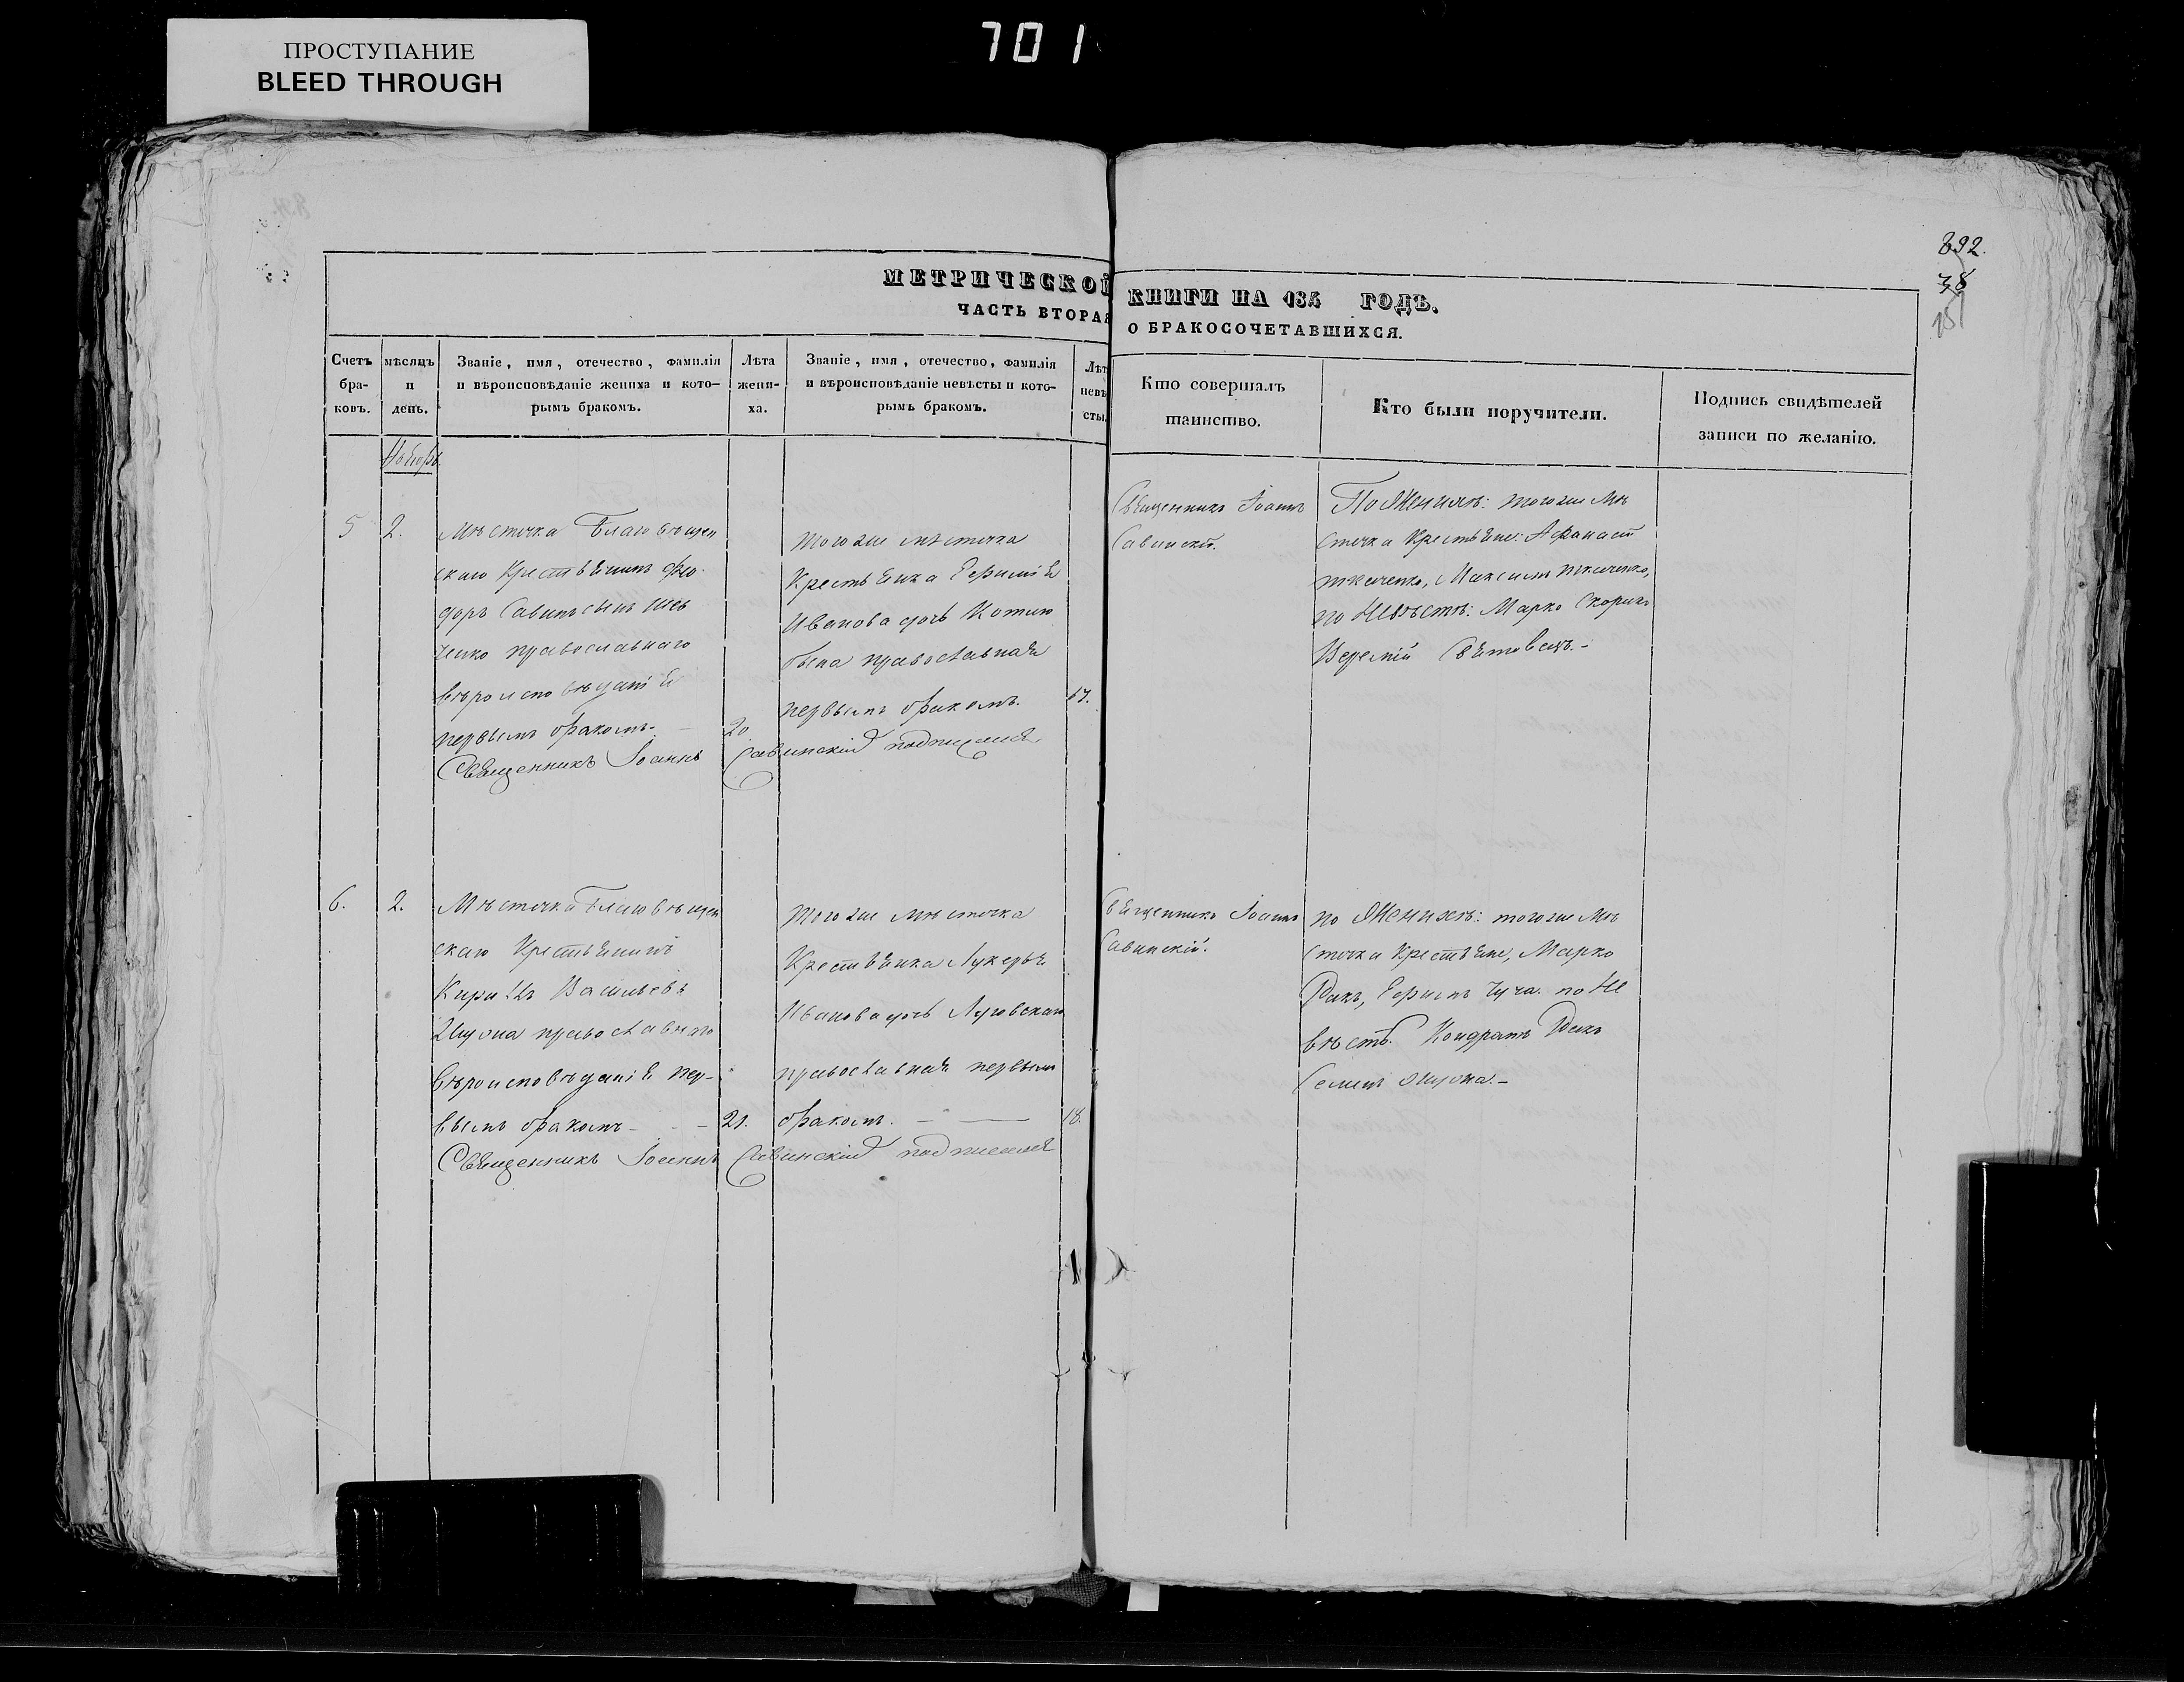 ПРОСТУПАНИЕ
BLEED THROUGH
701
892.
38
МЕТРИЧЕСКОЙ КНИГИ НА 185 ГОДЪ.
ЧАСТЬ ВТОРАЯ О БРАКОСОЧЕТАВШИХСЯ.
Счетъ
бра-
ковъ.
мѣсяцъ
и
день.
Званіе, имя, отечество, фамилія
и вѣроисповѣданіе жениха и кото-
рымъ бракомъ.
Лѣта
жени-
ха.
Званіе, имя, отечество, фамилія
и вѣроисповѣданіе невѣсты и кото-
рымъ бракомъ.
Лѣт
невѣ
сты.
Кто совершалъ
таинство.
Кто были поручители.
Подпись свидѣтелей
записи по желанію.
Ноябрь
5
2.
Мѣстечка Благовѣщен
скаго Крестьянинъ Фео
доръ Савинъ сынъ Шев
ченко православнаго
вѣроисповѣданія
первымъ бракомъ.
20
того же мѣстечка
Крестьянка Ефимія
Иванова дочь
православная
первымъ бракомъ.
17.
Священникъ Іоаннъ
Савинскій.
По Женихѣ: того же Мѣ
стечка Крестьяне: Афанасій
Ткаченко, Максимъ Ткаченко,
по Невѣстѣ: Марко Скорикъ
Священникъ Іоаннъ Савинскій подписался
6.
2.
Мѣстечка Благовѣщен
скаго Крестьянинъ
Кириллъ Васильевъ
православнаго
вѣроисповѣданія пер-
вымъ бракомъ
21.
того же мѣстечка
Крестьянка Лукерья
Иванова дочь Луговская
православная первымъ
бракомъ.
18.
Священникъ Іоаннъ
Савинскій.
по Женихѣ: того же Мѣ
стечка Крестьяне, Марко
Ракъ, Ефимъ по Не
вѣстѣ. Кондратъ Ракъ
Священникъ Іоаннъ Савинскій подписался